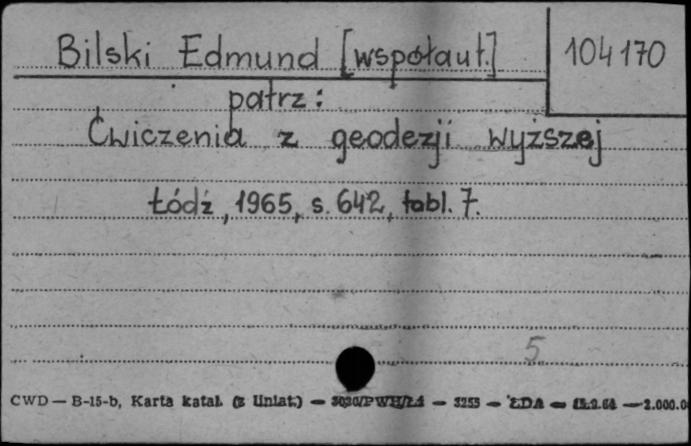 Bilski Edmund [współaut.] 104170
patrz:
Ćwiczenia z geodezji wyższej
Łódź, 1965, s. 642, tabl. 7.
5
CWD — B-15-b, Karta katal. (z liniat.) — — 3253 — ŁDA — — 2.000.0